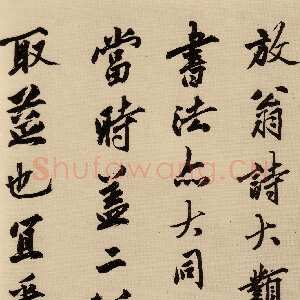 放翁詩大類
書法亦大同
當時蓋二
取益也宜
Shufawang.cn